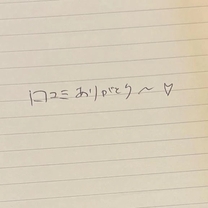 口コミありがとう〜♡